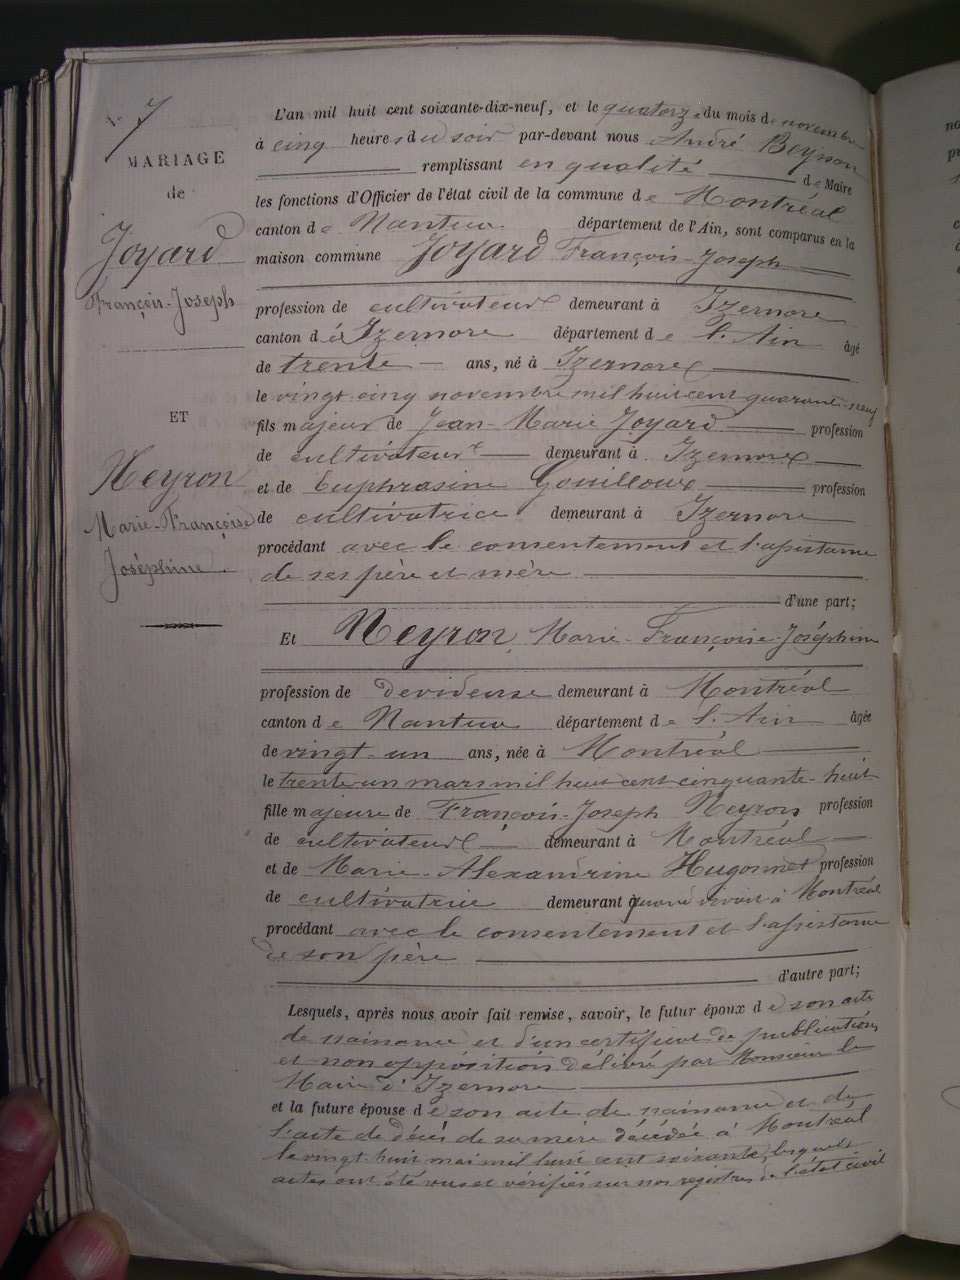 N° 7
MARIAGE
de
Joyard
François-Joseph
ET
Neyron
Marie-Françoise
Joséphine
L'an mil huit cent soixante-dix-neuf, et le quatorze du mois de novembre
à cinq heures du soir par-devant nous André Beysson
remplissant en qualité de Maire
les fonctions d'Officier de l'état civil de la commune de Montréal
canton de Nantua département de l'Ain, sont comparus en la
maison commune Joyard François-Joseph
profession de cultivateur demeurant à Izernore
canton d'Izernore département de l'Ain âgé
de trente ans, né à Izernore
le vingt cinq novembre mil huit cent quarante-neuf
fils majeur de Jean-Marie Joyard profession
de cultivateur demeurant à Izernore
et de Euphrasine Gouilloux profession
de cultivatrice demeurant à Izernore
procédant avec le consentement et l'assistance
de ses père et mère
d'une part;
Et Neyron, Marie-Françoise-Joséphine
profession de devideuse demeurant à Montréal
canton de Nantua département de l'Ain âgée
de vingt-un ans, née à Montréal
le trente un mars mil huit cent cinquante-huit
fille majeure de François-Joseph Neyron profession
de cultivateur demeurant à Montréal
et de Marie-Alexandrine Hugonnet profession
de cultivatrice demeurant quand vivait à Montréal
procédant avec le consentement et l'assistance
de son père
d'autre part;
Lesquels, après nous avoir fait remise, savoir, le futur époux de son acte
de naissance et d'un certificat de publications
et non opposition délivré par Monsieur le
Maire d'Izernore
et la future épouse de son acte de naissance et de
l'acte de décès de sa mère décédée à Montréal
le vingt-huit mai mil huit cent soixante, lesquels
actes ont été vus et vérifiés sur nos registres de l'état civil